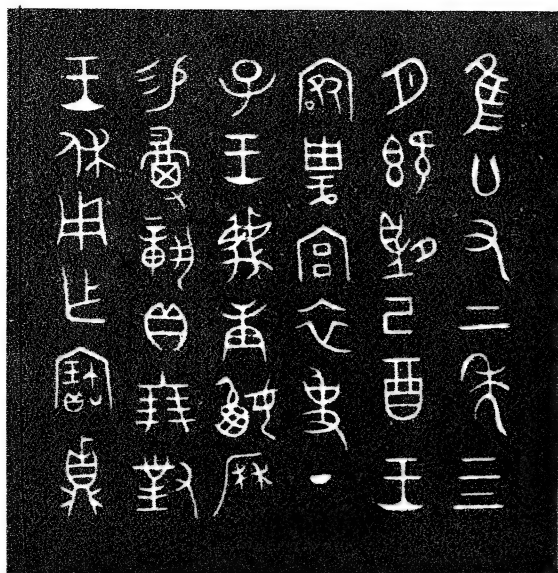 隹廿又二年三
月既望己酉王
客琱宮衣事丁
巳王蔑庚嬴曆
易貝十朋對
王休用乍寶鼎